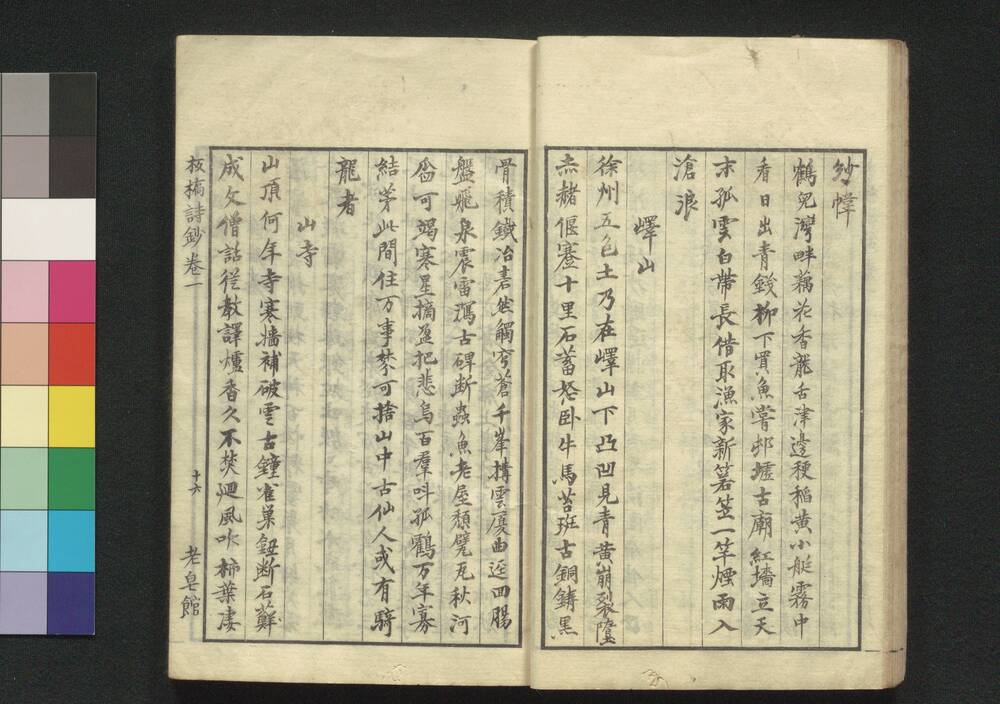 紗幃
鶴兒灣畔藕花香龍舌津邊稉稻黃小艇霧中
看日出青錢柳下買魚嘗邨墟古廟紅墻立天
末孤雲白帶長借取漁家新箬笠一竿煙雨入
滄浪
嶧山
徐州五色土乃在嶧山下凸凹見青黃崩裂墮
赤赭偃蹇十里石蓄怒卧牛馬苔班古銅鑄黑
骨積鐵冶嵩然觸穹蒼千峯搆雲廈曲逕回腸
盤飛泉震雷瀉古碑断蟲魚老屋頹甓瓦秋河
尙可竭寒星摘盈把悲鳥百羣呌孤鸛万年寡
結茅此間住万事棼可捨山中古仙人或有騎
龍者
山寺
山頂何年寺寒牆補破雲古鐘雀巢鈕断石蘚
成文僧話從教譯爐香久不焚廻風吹柿葉凄
板橋詩鈔卷一
十六
老皂館